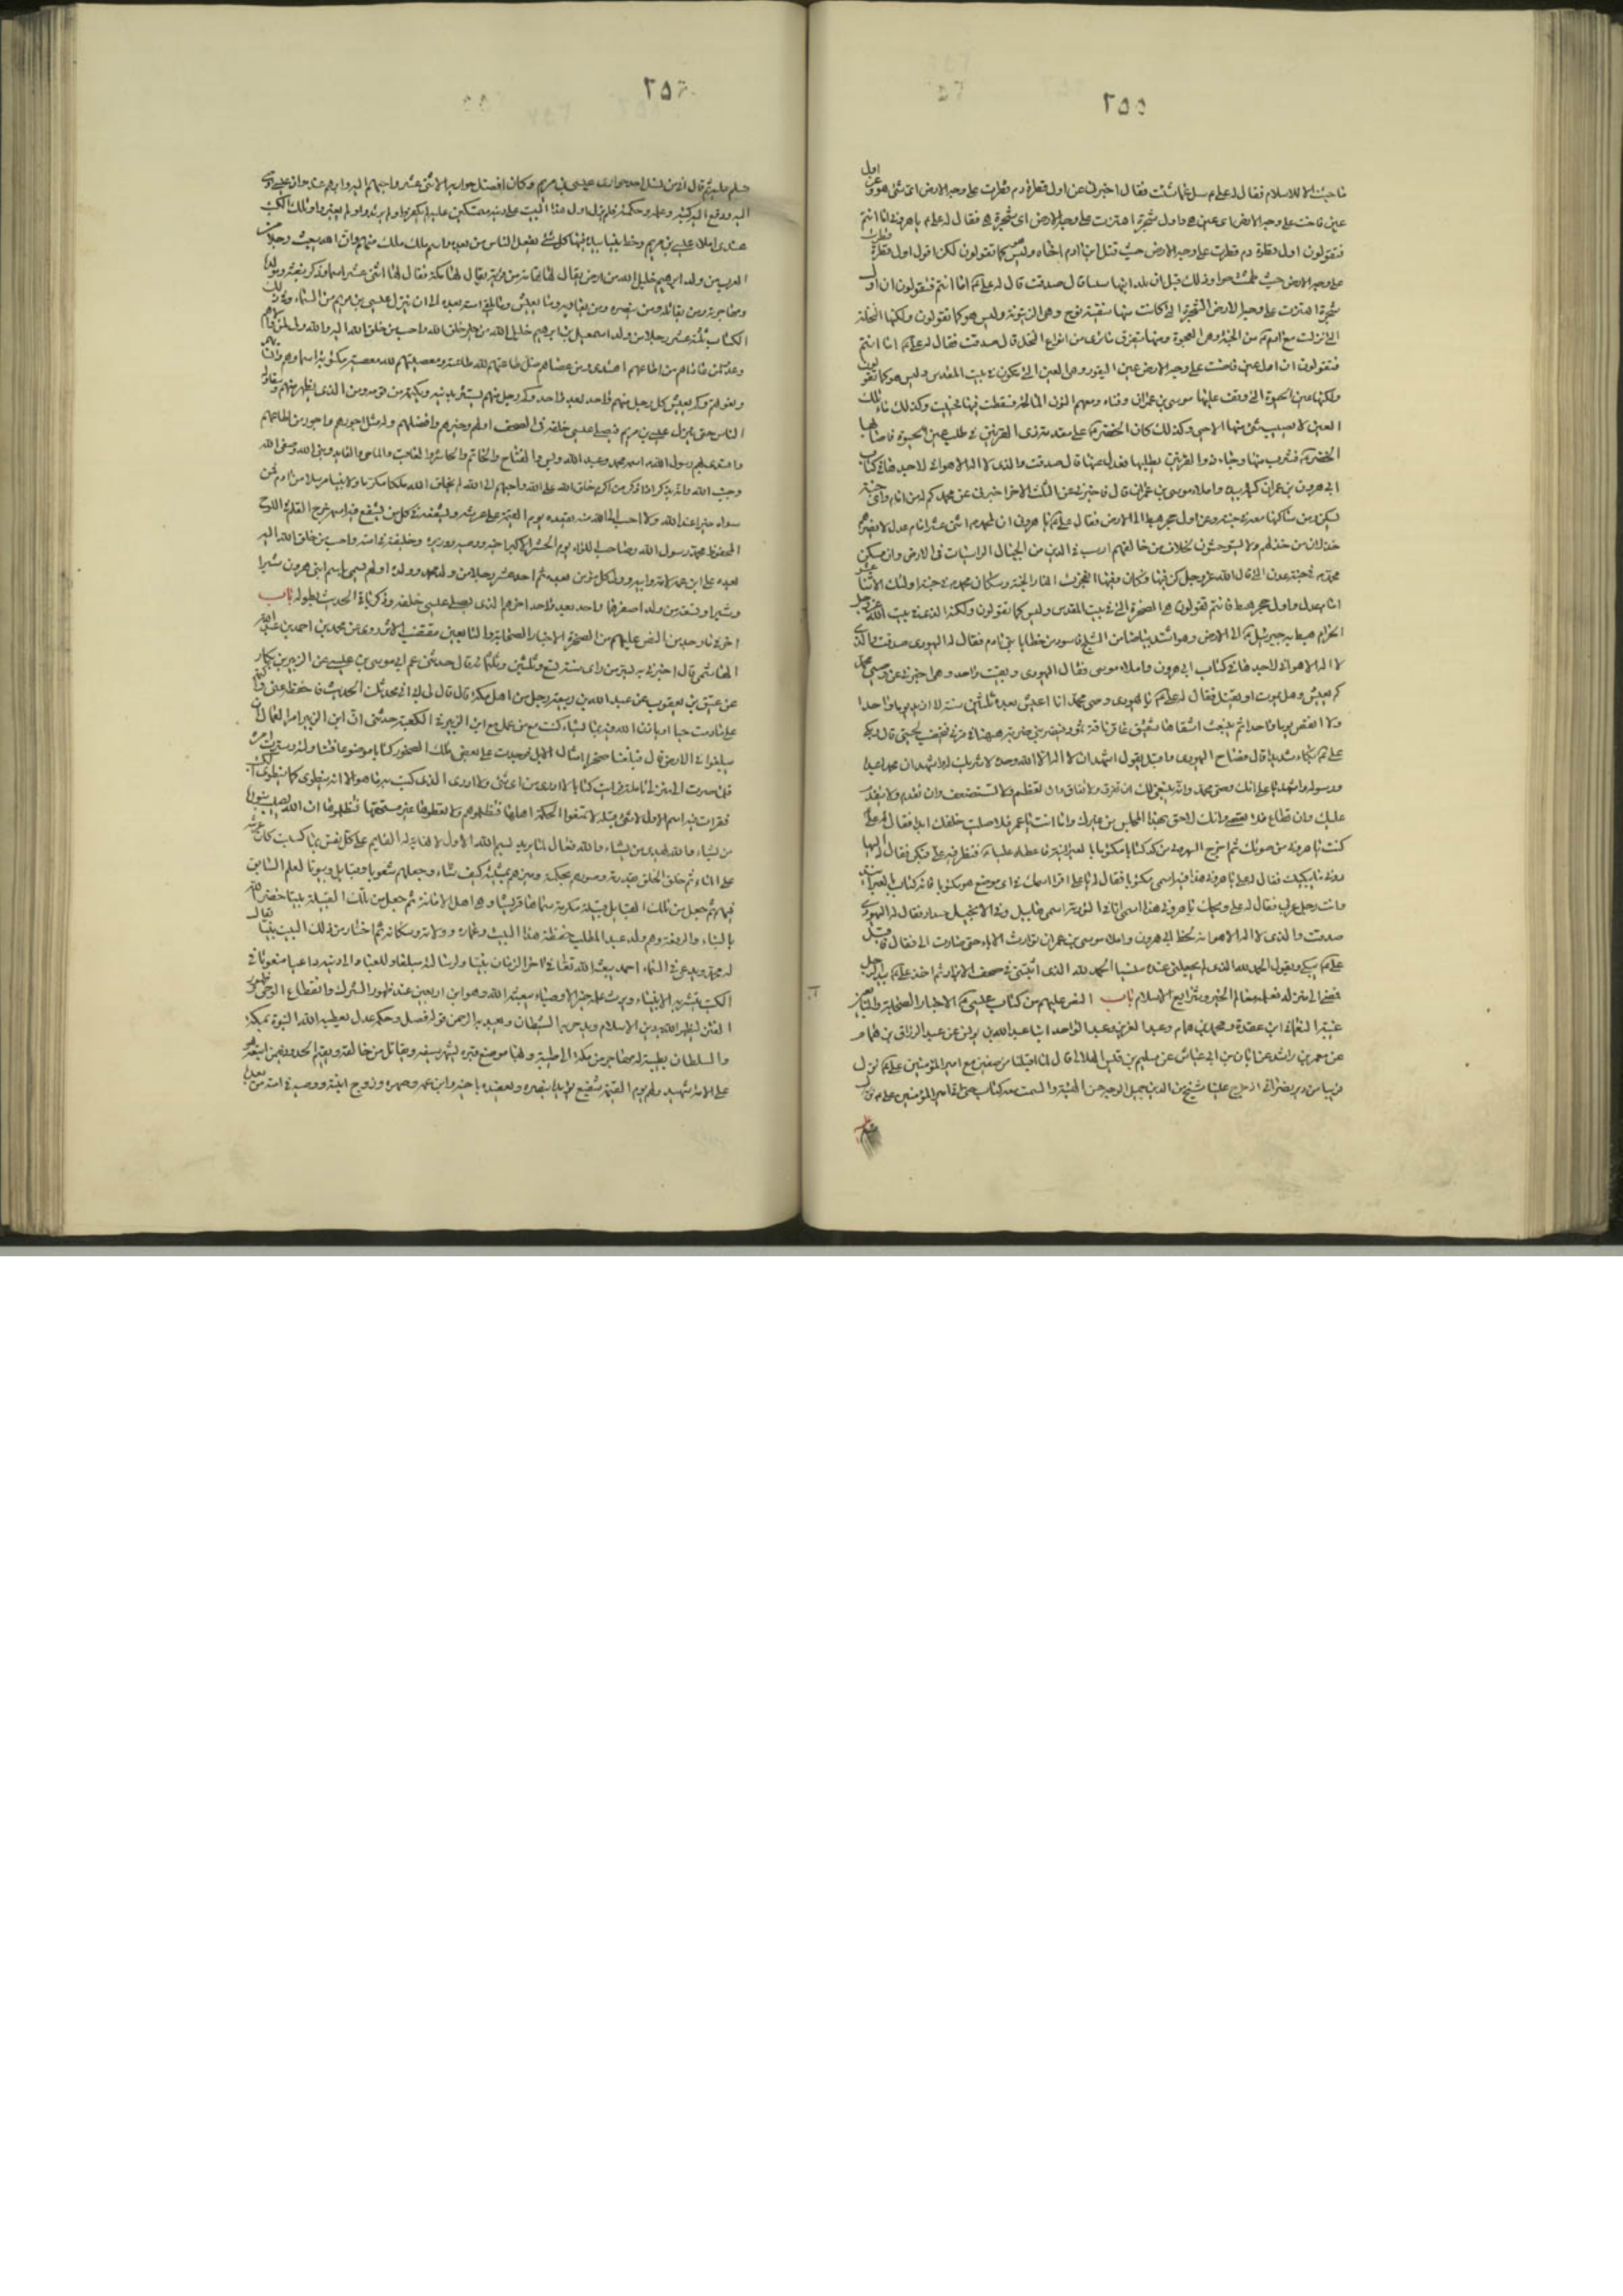 ٢٥٥
اول
ما جئت الا للاسلام فقال له علي م سل عما شئت فقال اخبرني عن اول قطرة دم قطرت على وجه الارض اي شئ هو وعن
عين فاضت على وجه الارض اي عين هي واول شجرة اهتزت على وجه الارض اي شجرة هي فقال له علي م يا هروني اما انتم
فتقولون اول قطرة دم قطرت على وجه الارض حيث قتل ابن ادم اخاه وليس كما تقولون لكن اقول اول قطرة قطرت
على وجه الارض حيث طمثت حوا وذلك قبل ان تلد ابنها قال صدقت قال له علي م اما انتم فتقولون ان اول
شجرة اهتزت على وجه الارض الشجرة التي كانت منها سفينة نوح وهي الزيتونة وليس هو كما تقولون ولكنها النخلة
التي نزلت مع ادم من الجنة وهي العجوة ومنها تفرق ما ترى من انواع النخل قال صدقت فقال له علي م اما انتم
فتقولون ان اول عين فاضت على وجه الارض عين اليقور وهي العين التي تكون في بيت المقدس وليس هو كما تقولون
ولكنها عين الحيوة التي وقف عليها موسى بن عمران وفتاه ومعهم النون المالح فسقطت فيها فحييت وكذلك ماء تلك
العين لا يصيب شئ منها الا حيى وكذلك كان الخضر على مقدمة ذي القرنين في طلب عين الحيوة فاصابها
الخضر م فشرب منها وجاء ذو القرنين يطلبها فعدل عنها قال صدقت والذي لا اله الا هو اني لاجدها في كتاب
ابي هرون بن عمران كتبه بيده واملاه موسى بن عمران قال فاخبرني عن الثلث الاخر اخبرني عن محمد كم له من امام واي جنة
يسكن ومن ساكنها معه في جنته وعن اول حجر هبط الى الارض فقال علي م يا هروني ان لمحمد م اثنى عشر امام عدل لا يضرهم
خذلان من خذلهم ولا يستوحشون بخلاف من خالفهم ارسب في الدين من الجبال الراسيات في الارض وان مسكن
محمد م في جنة عدن التي قال الله عز وجل كن فيها فكان ومنها انفجرت انهار الجنة وسكان محمد م في جنته اولئك الاثنا عشر
امام عدل واول حجر هبط فانتم تقولون هي الصخرة التي في بيت المقدس وليس كما تقولون ولكنه الذي في بيت الله عز وجل
الحرام هبط به جبرئيل م الى الارض وهو اشد بياضا من الثلج فاسود من خطايا بني ادم فقال له اليهودي صدقت والذي
لا اله الا هو اني لاجدها في كتاب ابي هرون واملاء موسى فقال اليهودي وبقيت واحدة وهي اخبرني عن وصي محمد
كم يعيش وهل يموت او يقتل فقال له علي م يا يهودي وصي محمد انا اعيش بعده ثلثين سنة لا ازيد يوما واحدا
ولا انقص يوما واحدا ثم ينبعث اشقاها شقيق عاقر ناقة ثمود فيضربني ضربة ههنا في قرني فتخضب لحيتي قال وبكى
علي م بكاء شديدا قال فصاح اليهودي واقبل يقول اشهد ان لا اله الا الله وحده لا شريك له واشهد ان محمدا عبده
ورسوله واشهد يا علي انك وصي محمد وانه ينبغي لك ان تفوق ولا تفاق وان تعظم ولا تستضعف وان تقدم ولا يتقدم
عليك وان تطاع فلا تعصى وانك لاحق بهذا المجلس من غيرك واما انت يا عمر فلا صليت خلفك ابدا فقال له علي
كف يا هروني من صوتك ثم اخرج الهروني من كمه كتابا مكتوبا بالعبرانية فاعطاه عليا م فنظر فيه علي فبكى فقال له
الهروني ما يبكيك فقال له علي يا هروني هذا فيه اسمي مكتوبا فقال له يا علي اقرأ اسمك في اي موضع هو مكتوبا فانه كتاب بالعبرانية
وانت رجل عربي فقال له علي ويحك يا هروني هذا اسمي اما في التورية اسمي هابيل وفي الانجيل حيدار فقال له اليهودي
صدقت والذي لا اله الا هو انه لخط ابي هرون واملاء موسى بن عمران توارثه الاباء حتى صارت الي فقال فاقبل
علي م يبكي ويقول الحمد لله الذي لم يجعلني عنده منسيا الحمد لله الذي اثبتني في صحف الابرار ثم اخذ علي م بيد الرجل
فمضى الى منزله فعلمه معالم الخير وشرايع الاسلام باب النص عليهم من كتاب عيسى م الاخبار الصحابة والتابعين
غيبة النعماني ابن عقدة ومحمد بن همام وعبد العزيز وعبد الواحد ابنا عبد الله بن يونس عن عبد الرزاق بن همام
عن معمر بن راشد عن ابان بن ابي عياش عن سليم بن قيس الهلالي قال لما اقبلنا من صفين مع امير المؤمنين علي م نزل
قريبا من دير نصراني اذ خرج علينا شيخ من الدير جميل الوجه حسن الهيئة والسمت معه كتاب حتى اتى امير المؤمنين علي م
٢٥٦
فسلم عليه ثم قال اني من نسل احد حواري عيسى بن مريم وكان افضل حواريه الاثنى عشر واحبهم اليه وابرهم عنده وان عيسى اوصى
اليه ودفع اليه كتبه وعلمه وحكمته فلم يزل اهل هذا البيت على دينه متمسكين عليه لم يكفروا ولم يرتدوا ولم يغيروا وتلك الكتب
عندي املاء عيسى بن مريم وخط ابينا بيده فيها كل شئ يفعل الناس من بعده واسم ملك ملك منهم وان الله يبعث رجلا من
العرب من ولد ابراهيم خليل الله من ارض يقال لها تهامة من قرية يقال لها مكة يقال له احمد له اثنى عشر اسما وذكر مبعثه ومولده
ومهاجرته ومن يقاتله ومن ينصره ومن يعاديه وما يعيش وما تلقى امته بعده الى ان ينزل عيسى بن مريم من السماء وفي ذلك
الكتاب ثلثة عشر رجلا من ولد اسمعيل بن ابراهيم خليل الله من خير خلق الله واحب من خلق الله اليه والله ولي لمن والاهم
وعدو لمن عاداهم من اطاعهم اهتدى ومن عصاهم ضل طاعتهم لله طاعة ومعصيتهم لله معصية مكتوبة اسماؤهم وانسابهم
ونعوتهم وكم يعيش كل رجل منهم واحد بعد واحد وكم رجل منهم يستتر بدينه ويكتمه من قومه ومن الذي يظهر منهم وينقاد له
الناس حتى ينزل عيسى بن مريم فيصلي عيسى خلفه في الصحف اولهم وخيرهم وافضلهم وله مثل اجورهم واجور من اطاعهم
واهتدى بهم رسول الله اسمه محمد وعبد الله ويس والفتاح والخاتم والحاشر والعاقب والماحي والقايد ونبي الله وصفي الله
وجنب الله وانه يذكر اذا ذكر من اكرم خلق الله على الله واحبهم الى الله لم يخلق الله ملكا مكرما ولا نبيا مرسلا من ادم فمن
سواه خيرا عند الله ولا احب الى الله منه يقعده يوم القيمة على عرشه ويشفعه في كل من يشفع فيه باسمه جرى القلم في اللوح
المحفوظ محمد رسول الله وبصاحب اللواء يوم الحشر الاكبر اخيه ووصيه ووزيره وخليفته في امته واحب من خلق الله اليه
بعده علي ابن عمه لامه وابيه وولي كل مؤمن بعده ثم احد عشر رجلا من ولد محمد وولده اولهم يسمى باسم ابني هرون شبرا
وشبيرا وتسعة من ولد اصغرهما واحد بعد واحد اخرهم الذي يصلي عيسى خلفه وذكر باقي الحديث بطوله باب
اخر فيما وجد من النص عليهم من الصخرة الاخبار الصحابة والتابعين مقتضب الاثر روى عن محمد بن احمد بن عبيد الله
الهاشمي قال اخبرني به بسر من راى سنة تسع وثلثين وثلثمائة قال حدثني عم ابي موسى بن عيسى عن الزبير بن بكار
عن عتيق بن يعقوب عن عبد الله بن ربيعة رجل من اهل مكة قال قال لي ابي اني محدثك الحديث فاحفظه عني واكتمه
علي ما دمت حيا او ياذن الله فيه بما يشاء كنت مع من عمل مع ابن الزبير في الكعبة حدثني ان ابن الزبير امر العمال ان
يبلغوا في الارض قال فبلغنا صخرا امثال الابل فوجدت على بعض تلك الصخور كتابا موضوعا فتناولته وسترت امره
فلما صرت الى منزلي تاملته فرايت كتابا لا ادري من اي شئ هو ولا ادري الذي كتب به ما هو الا انه ينطوي كما ينطوي الكتب
فقرات فيه باسم الاول لا شئ قبله لا تمنعوا الحكمة اهلها فتظلموهم ولا تعطوها غير مستحقها فتظلموها ان الله يصيب بنوره
من يشاء والله يهدي من يشاء والله فعال لما يريد بسم الله الاول لا نهاية له القايم على كل نفس بما كسبت كان عرشه
على الماء ثم خلق الخلق بقدرته وصورهم بحكمته وميزهم بمشيته كيف شاء وجعلهم شعوبا وقبايل وبيوتا لعلم السابق
فيهم ثم جعل من تلك القبايل قبيلة مكرمة سماها قريشا وهي اهل الامامة ثم جعل من تلك القبيلة بيتا خصه الله
بالبناء والرفعة وهم ولد عبد المطلب حفظة هذا البيت وعماره وولاته وسكانه ثم اختار من ذلك البيت نبيا يقال
له محمد ويدعى في السماء احمد يبعثه الله تعالى في اخر الزمان نبيا ولرسالته مبلغا وللعباد الى دينه داعيا منعوتا في
الكتب تبشر به الانبياء ويرث علمه خير الاوصياء يبعثه الله وهو ابن اربعين عند ظهور الشرك وانقطاع الوحي وظهور
الفتن ليظهر الله به دين الاسلام ويدحر به الشيطان ويعبد به الرحمن قوله فصل وحكمه عدل يعطيه الله النبوة بمكة
والسلطان بطيبة له مهاجرة من مكة الى طيبة وبها موضع قبره يشهر سيفه ويقاتل من خالفه ويقيم الحدود فيمن اتبعه
على الامة شهيد ولهم يوم القيمة شفيع يؤيده بنصره ويعضده باخيه وابن عمه وصهره وزوج ابنته ووصيه في امته من بعده